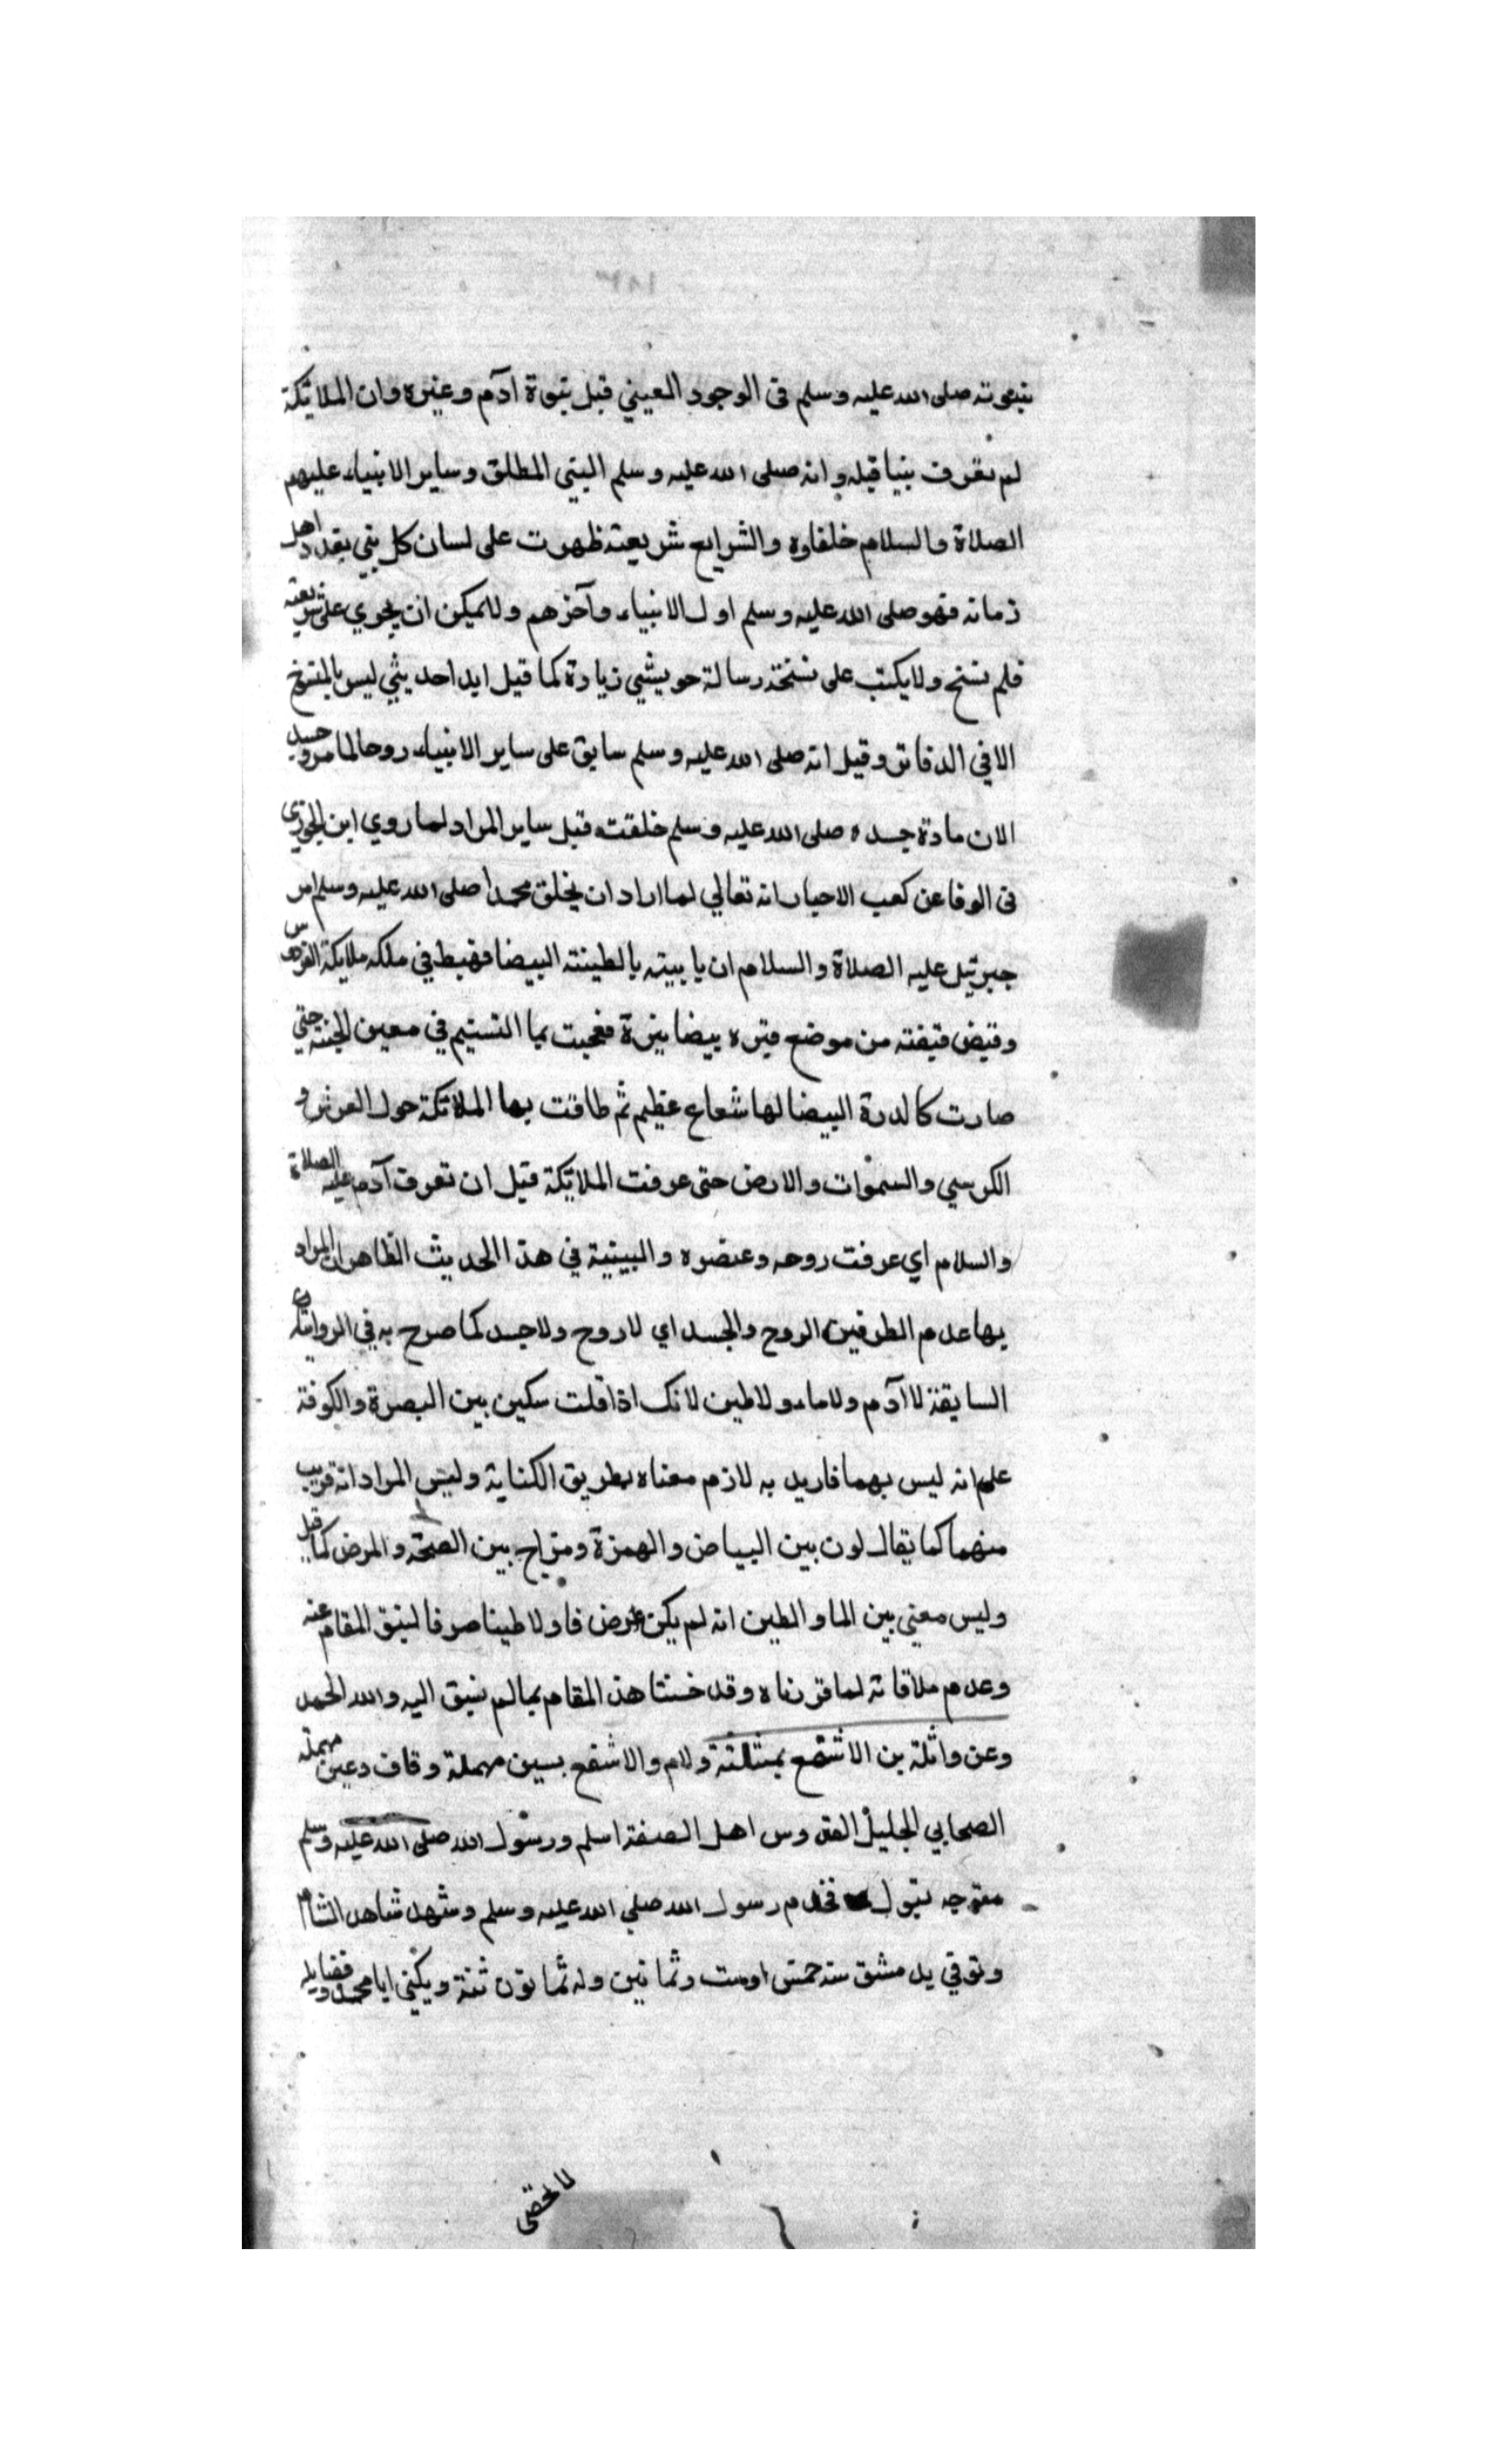 بنبوته صلى الله عليه وسلم فى الوجود العيني قبل نبوة ادآم وغيره وان الملائكة
لم تعرف بنيا قبله وانه صلى الله عليه وسلم النبى المطلق وساير الانبياء عليهم
الصلاة والسلام خلفاوه والشرايع شريعته ظهرت على لسان كل بني بقدر اهل
زمانه فهو صلى الله عليه وسلم اول الانبياء وآخرهم ولا يمكن ان يجوي على شريعته
فلم نسخ ولا يكتب على نسخة رسالة حويشي زيادة كما قيل ايدا حديثي ليس بالمنسخ
الا في الدفاتر وقيل انه صلى الله عليه وسلم سابق على ساير الانبياء روحا لما مر وجسد
الان مادة جسده صلى الله عليه وسلم خلقت قبل ساير المراد لما روي ابن الجوزى
فى الوفا عن كعب الاحبار انه تعالي لما اراد ان يخلق محمدا صلى الله عليه وسلم امر
جبرئيل عليه الصلاة والسلام ان ياييته بالطينته البيضا فهبط في ملكه ملايكة الفردوس
وقبض قبضته من موضع قبره بيضا نيرة فعجبت بما التسنيم في معين الجنة حتي
صارت كالدرة البيضا لها شعاع عظيم ثم طافت بها الملائكة حول العرش و
الكرسي والسموات والارض حتى عرفت الملائكة قبل ان تعرف آدم عليه الصلاة
والسلام اي عرفت روحه وعنصره والبينية في هذا الحديث الظاهر ان المراد
بها عدم الطرفين الروح والجسد اي لا روح ولا جسد كما صرح به في الرواية
السابقة لا آدم ولا ماء ولا طين لانك اذا قلت سكين بين البصرة والكوفة
علم انه ليس بهما فاريد به لازم معناه بطريق الكناية وليس المراد انه قريب
منهما كما يقال لون بين البياض والهمزة ومزاج بين الصحة والمرض كما قيل
وليس معني بين الما والطين انه لم يكن عرض فا ولا طينا صرفا لينق المقام عنه
وعدم ملاقاته لما قررناه وقد خستنا هذ المقام بما لم نسبق اليه والله الحمد
وعن واثلة بن الاشقع بمثلثة ولام والاشقع بسين مهملة وقاف وعين مهملة
الصحابي الجليل القد وس اهل الصفة اسلم ورسول الله صلى الله عليه وسلم
متوجه تبول فخدم رسول الله صلى الله عليه وسلم وشهد شاهد الشام
وتوفي يد مشق سنة خمس اوست وثمانين وله ثمانون ثنة ويكني ابا محمد وفضايله
لا تحصى